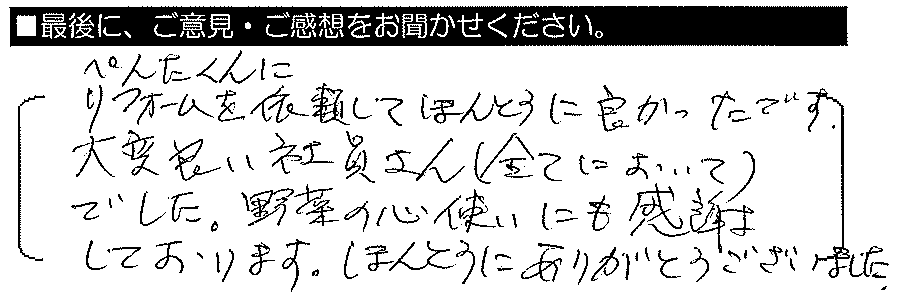 ■最後に、ご意見・ご感想をお聞かせください。
ぺんたくんに
リフォームを依頼してほんとうに良かったです。
大変良い社員さん(全てにおいて)
でした。野菜の心使いにも感謝は
しております。ほんとうにありがとうございました。